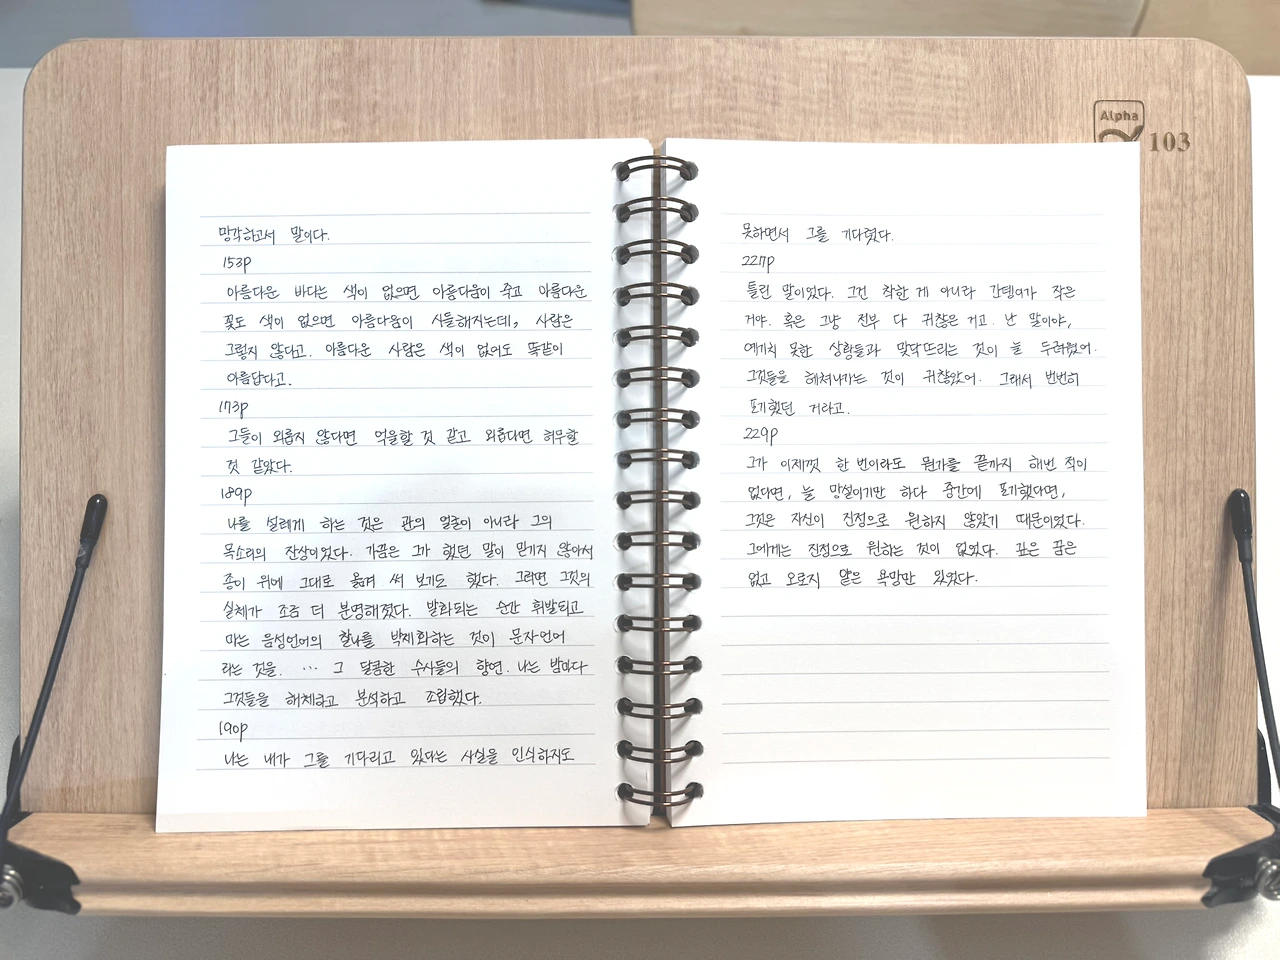 Alpha
103
망각하고서 말이다.
153p
아름다운 바다는 색이 없으면 아름다움이 죽고 아름다운
꽃도 색이 없으면 아름다움이 시들해지는데, 사람은
그렇지 않다고. 아름다운 사람은 색이 없어도 똑같이
아름답다고.
173p
그들이 외롭지 않다면 억울할 것 같고 외롭다면 허무할
것 같았다.
189p
나를 설레게 하는 것은 관의 얼굴이 아니라 그의
목소리의 잔상이었다. 가끔은 그가 했던 말이 믿기지 않아서
종이 위에 그대로 옮겨 써 보기도 했다. 그러면 그것의
실체가 조금 더 분명해졌다. 발화되는 순간 휘발되고
마는 음성언어의 찰나를 박제화하는 것이 문자언어
라는 것을. … 그 달콤한 수사들의 향연. 나는 밤마다
그것들을 해체하고 분석하고 조립했다.
190p
나는 내가 그를 기다리고 있다는 사실을 인식하지도
못하면서 그를 기다렸다.
227p
틀린 말이었다. 그건 착한 게 아니라 간텡이가 작은
거야. 혹은 그냥 전부 다 귀찮은 거고. 난 말이야,
예기치 못한 상황들과 맞닥뜨리는 것이 늘 두려웠어.
그것들을 헤쳐나가는 것이 귀찮았어. 그래서 번번히
포기했던 거라고.
229p
그가 이제껏 한 번이라도 뭔가를 끝까지 해번 적이
없다면, 늘 망설이기만 하다 중간에 포기했다면,
그것은 자신이 진정으로 원하지 않았기 때문이었다.
그에게는 진정으로 원하는 것이 없었다. 깊은 꿈은
없고 오로지 얕은 욕망만 있었다.